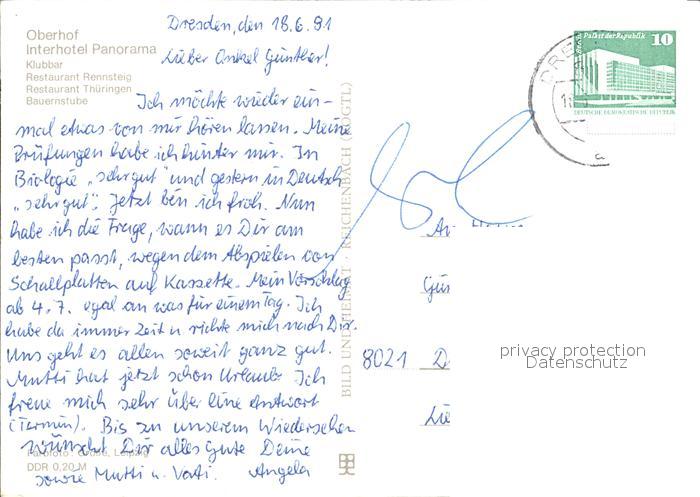 Dresden, den 18.6.81
Oberhof
Interhotel Panorama
Klubbar
Restaurant Rennsteig
Restaurant Thüringen
Bauernstube
Lieber Onkel Günther!
Ich möchte wieder ein-
mal etwas von mir hören lassen. Meine
Prüfungen habe ich hinter mir. In
Biologie „sehr gut" und gestern in Deutsch
„sehr gut". Jetzt bin ich froh. Nun
habe ich die Frage, wann es Dir am
besten passt, wegen dem Abspielen von
Schallplatten auf Kassette. Mein Vorschlag
ab 4.7. egal an was für einem Tag. Ich
habe da immer Zeit u. richte mich nach Dir.
Uns geht es allen soweit ganz gut.
Mutti hat jetzt schon Urlaub. Ich
freue mich sehr über eine Antwort
(Termin). Bis zu unserem Wiedersehen
wünscht Dir alles Gute Deine
sowie Mutti u. Vati. Angela
Leipzig
DDR 0,20 M
BILD UND HEIMAT · REICHENBACH (VOGTL)
Palast der Republik
10
DEUTSCHE DEMOKRATISCHE REPUBLIK
DRE
a
An
Gün
8021 D
privacy protection
Datenschutz